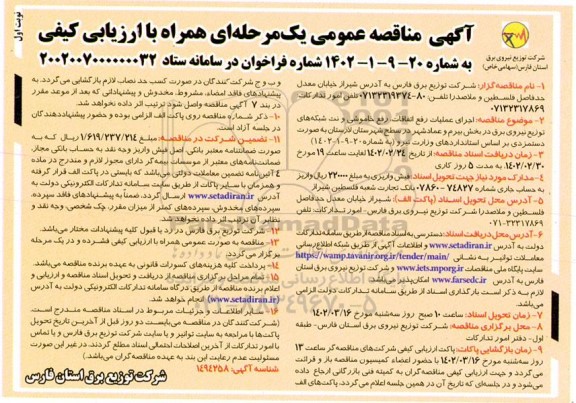 نوبت اول
آگهی مناقصه عمومی یک‌مرحله‌ای همراه با ارزیابی کیفی
به شماره ۲۰-۹-۱-۱۴۰۲ شماره فراخوان در سامانه ستاد ۲۰۰۲۰۰۷۰۰۰۰۰۰۰۳۲
شرکت توزیع نیروی برق
استان فارس(سهامی خاص)
۱- نام مناقصه‌گزار: شرکت توزیع برق فارس به آدرس شیراز خیابان معدل
حدفاصل فلسطین و ملاصدرا تلفن: ۸۰-۰۷۱۳۲۳۱۹۳۷۴ تلفن امور تدارکات
۰۷۱۳۲۳۱۷۸۶۹
۲- موضوع مناقصه: اجرای عملیات رفع اتفاقات، رفع خاموشی و نت شبکه‌های
توزیع نیروی برق در بخش بیرم و عمادشهر و سطح شهرستان لارستان به صورت
دستمزدی بر اساس استانداردهای وزارت نیرو (به شماره ۲۰-۹-۱-۱۴۰۲)
۳- زمان دریافت اسناد مناقصه: از تاریخ ۱۴۰۲/۰۲/۲۴ لغایت ساعت ۱۹ مورخ
۱۴۰۲/۰۲/۳۰ به مدت ۵ روز کاری
۴- مدارک مورد نیاز جهت تحویل اسناد: فیش واریزی به مبلغ ۲۲۰۰۰۰ ریال واریز
به حساب جاری شماره ۷۴۸۲۷-۷۸۶۰ بانک تجارت شعبه فلسطین شیراز
۵- آدرس محل تحویل اسناد (پاکت الف): شیراز خیابان معدل حد فاصل
فلسطین و ملاصدرا شرکت توزیع نیروی برق فارس - امور تدارکات، تلفن
۰۷۱-۳۲۳۱۷۸۶۹
۶- آدرس محل دریافت اسناد: دسترسی به اسناد مناقصه از طریق سامانه تدارکات الکترونیکی
دولت به آدرس www.setadiran.ir و اطلاعات آگهی از طریق شبکه اطلاع‌رسانی
معاملات توانیر به نشانی https://wamp.tavanir.org.ir/tender/main/
سایت پایگاه ملی مناقصات www.ietsmporg.ir و شرکت توزیع نیروی برق استان
فارس به آدرس www.farsedc.ir امکان‌پذیر می‌باشد.
لازم به ذکر است بارگذاری اسناد از طریق سامانه تدارکات الکترونیک دولت
می‌باشد.
۷- زمان تحویل اسناد: ساعت ۱۰ صبح روز سه‌شنبه مورخ ۱۴۰۲/۰۳/۱۶
۸- محل برگزاری مناقصه: شرکت توزیع نیروی برق استان فارس- طبقه
اول- دفتر امور تدارکات
۹- زمان بازگشایی پاکات: پاکت ارزیابی کیفی شرکت‌های مناقصه‌گر ساعت ۱۳
روز سه‌شنبه مورخ ۱۴۰۲/۰۳/۱۶ با حضور اعضاء کمیسیون مناقصه باز و قرائت
می‌گردد و جهت ارزیابی کیفی مناقصه‌گران به کمیته فنی بازرگانی ارجاع داده
می‌شود و در جلسه‌ای که تاریخ آن در همین جلسه اعلام می‌گردد، پاکت‌های الف
و ب و ج شرکت کنندگان در صورت کسب حد نصاب لازم بازگشایی می گردد. به
پیشنهادهای فاقد امضاء، مشروط، مخدوش و پیشنهاداتی که بعد از موعد مقرر
در بند ۷ آگهی مناقصه واصل شود ترتیب اثر داده نخواهد شد.
۱۰- ذکر شماره مناقصه روی پاکت الف الزامی بوده و حضور پیشنهاددهندگان
در جلسه آزاد است.
۱۱- تضمین شرکت در مناقصه: مبلغ ۱/۶۱۹/۲۳۷/۲۱۴ ریال که به
صورت ضمانتنامه معتبر بانکی، اصل فیش واریز وجه نقد به حساب بانکی مجاز،
ضمانت‌نامه‌های معتبر از موسسات بیمه‌گر دارای مجوز لازم و مندرج در ماده
۴ آئین‌نامه تضمین معاملات دولتی می‌باشد که بایستی در پاکت الف قرار گرفته
و همزمان با سایر پاکات از طریق سایت سامانه تدارکات الکترونیکی دولت به
آدرس www.setadiran.ir ارسال گردد. ضمناً به پیشنهادهای فاقد سپرده،
سپرده‌های مخدوش، سپرده‌های کمتر از میزان مقرر، چک شخصی، وجه نقد و
نظایر آن ترتیب اثر داده نخواهد شد.
۱۲- شرکت توزیع برق فارس در رد یا قبول کلیه پیشنهادات مختار می‌باشد.
۱۳- مناقصه به صورت عمومی همراه با ارزیابی کیفی فشرده و در یک مرحله
برگزار می‌گردد.
۱۴- پرداخت کلیه هزینه‌های کسورات قانونی به عهده برنده مناقصه می‌باشد.
۱۵- تمام مراحل برگزاری مناقصه از دریافت و تحویل اسناد مناقصه و ارزیابی و
اعلام برنده مناقصه از طریق درگاه سامانه تدارکات الکترونیکی دولت به آدرس
(www.setadiran.ir) انجام خواهد شد.
۱۶- سایر اطلاعات و جزئیات مربوط در اسناد مناقصه مندرج است.
(شرکت کنندگان در مناقصه می‌بایست دو روز قبل از آخرین تاریخ تحویل
پاکت‌ها به سایت توانیر و یا سایت شرکت توزیع برق فارس و یا تماس
با امور تدارکات از آخرین اصلاحات احتمالی اسناد مطلع گردند. در غیر این صورت
مسئولیت عدم رعایت این بند به عهده مناقصه گران می‌باشد.)
شناسه آگهی: ۱۴۹۴۲۵۸
شرکت توزیع برق استان فارس